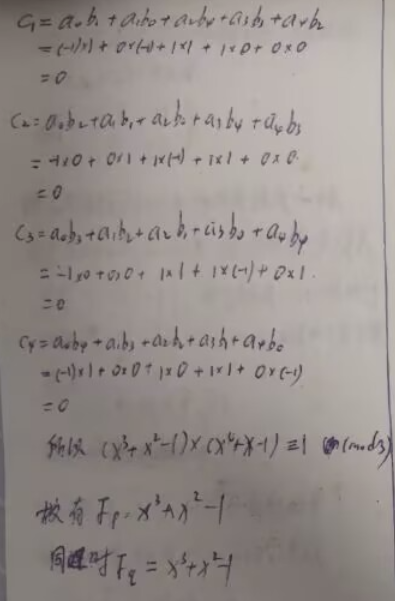 C₁ = a₀b₁ + a₁b₀ + a₂b₄ + a₃b₃ + a₄b₂
= (-1)×1 + 0×(-1) + 1×1 + 1×0 + 0×0
= 0
C₂ = a₀b₂ + a₁b₁ + a₂b₀ + a₃b₄ + a₄b₃
= -1×0 + 0×1 + 1×(-1) + 1×1 + 0×0
= 0
C₃ = a₀b₃ + a₁b₂ + a₂b₁ + a₃b₀ + a₄b₄
= -1×0 + 0×0 + 1×1 + 1×(-1) + 0×1.
= 0
C₄ = a₀b₄ + a₁b₃ + a₂b₂ + a₃b₁ + a₄b₀
= (-1)×1 + 0×0 + 1×0 + 1×1 + 0×(-1)
= 0
所以 (x³+x²-1)×(x⁴+x-1) ≡ 1 (mod 3)
故有 Fp = x³+x²-1
同理 Fq = x³+x²-1